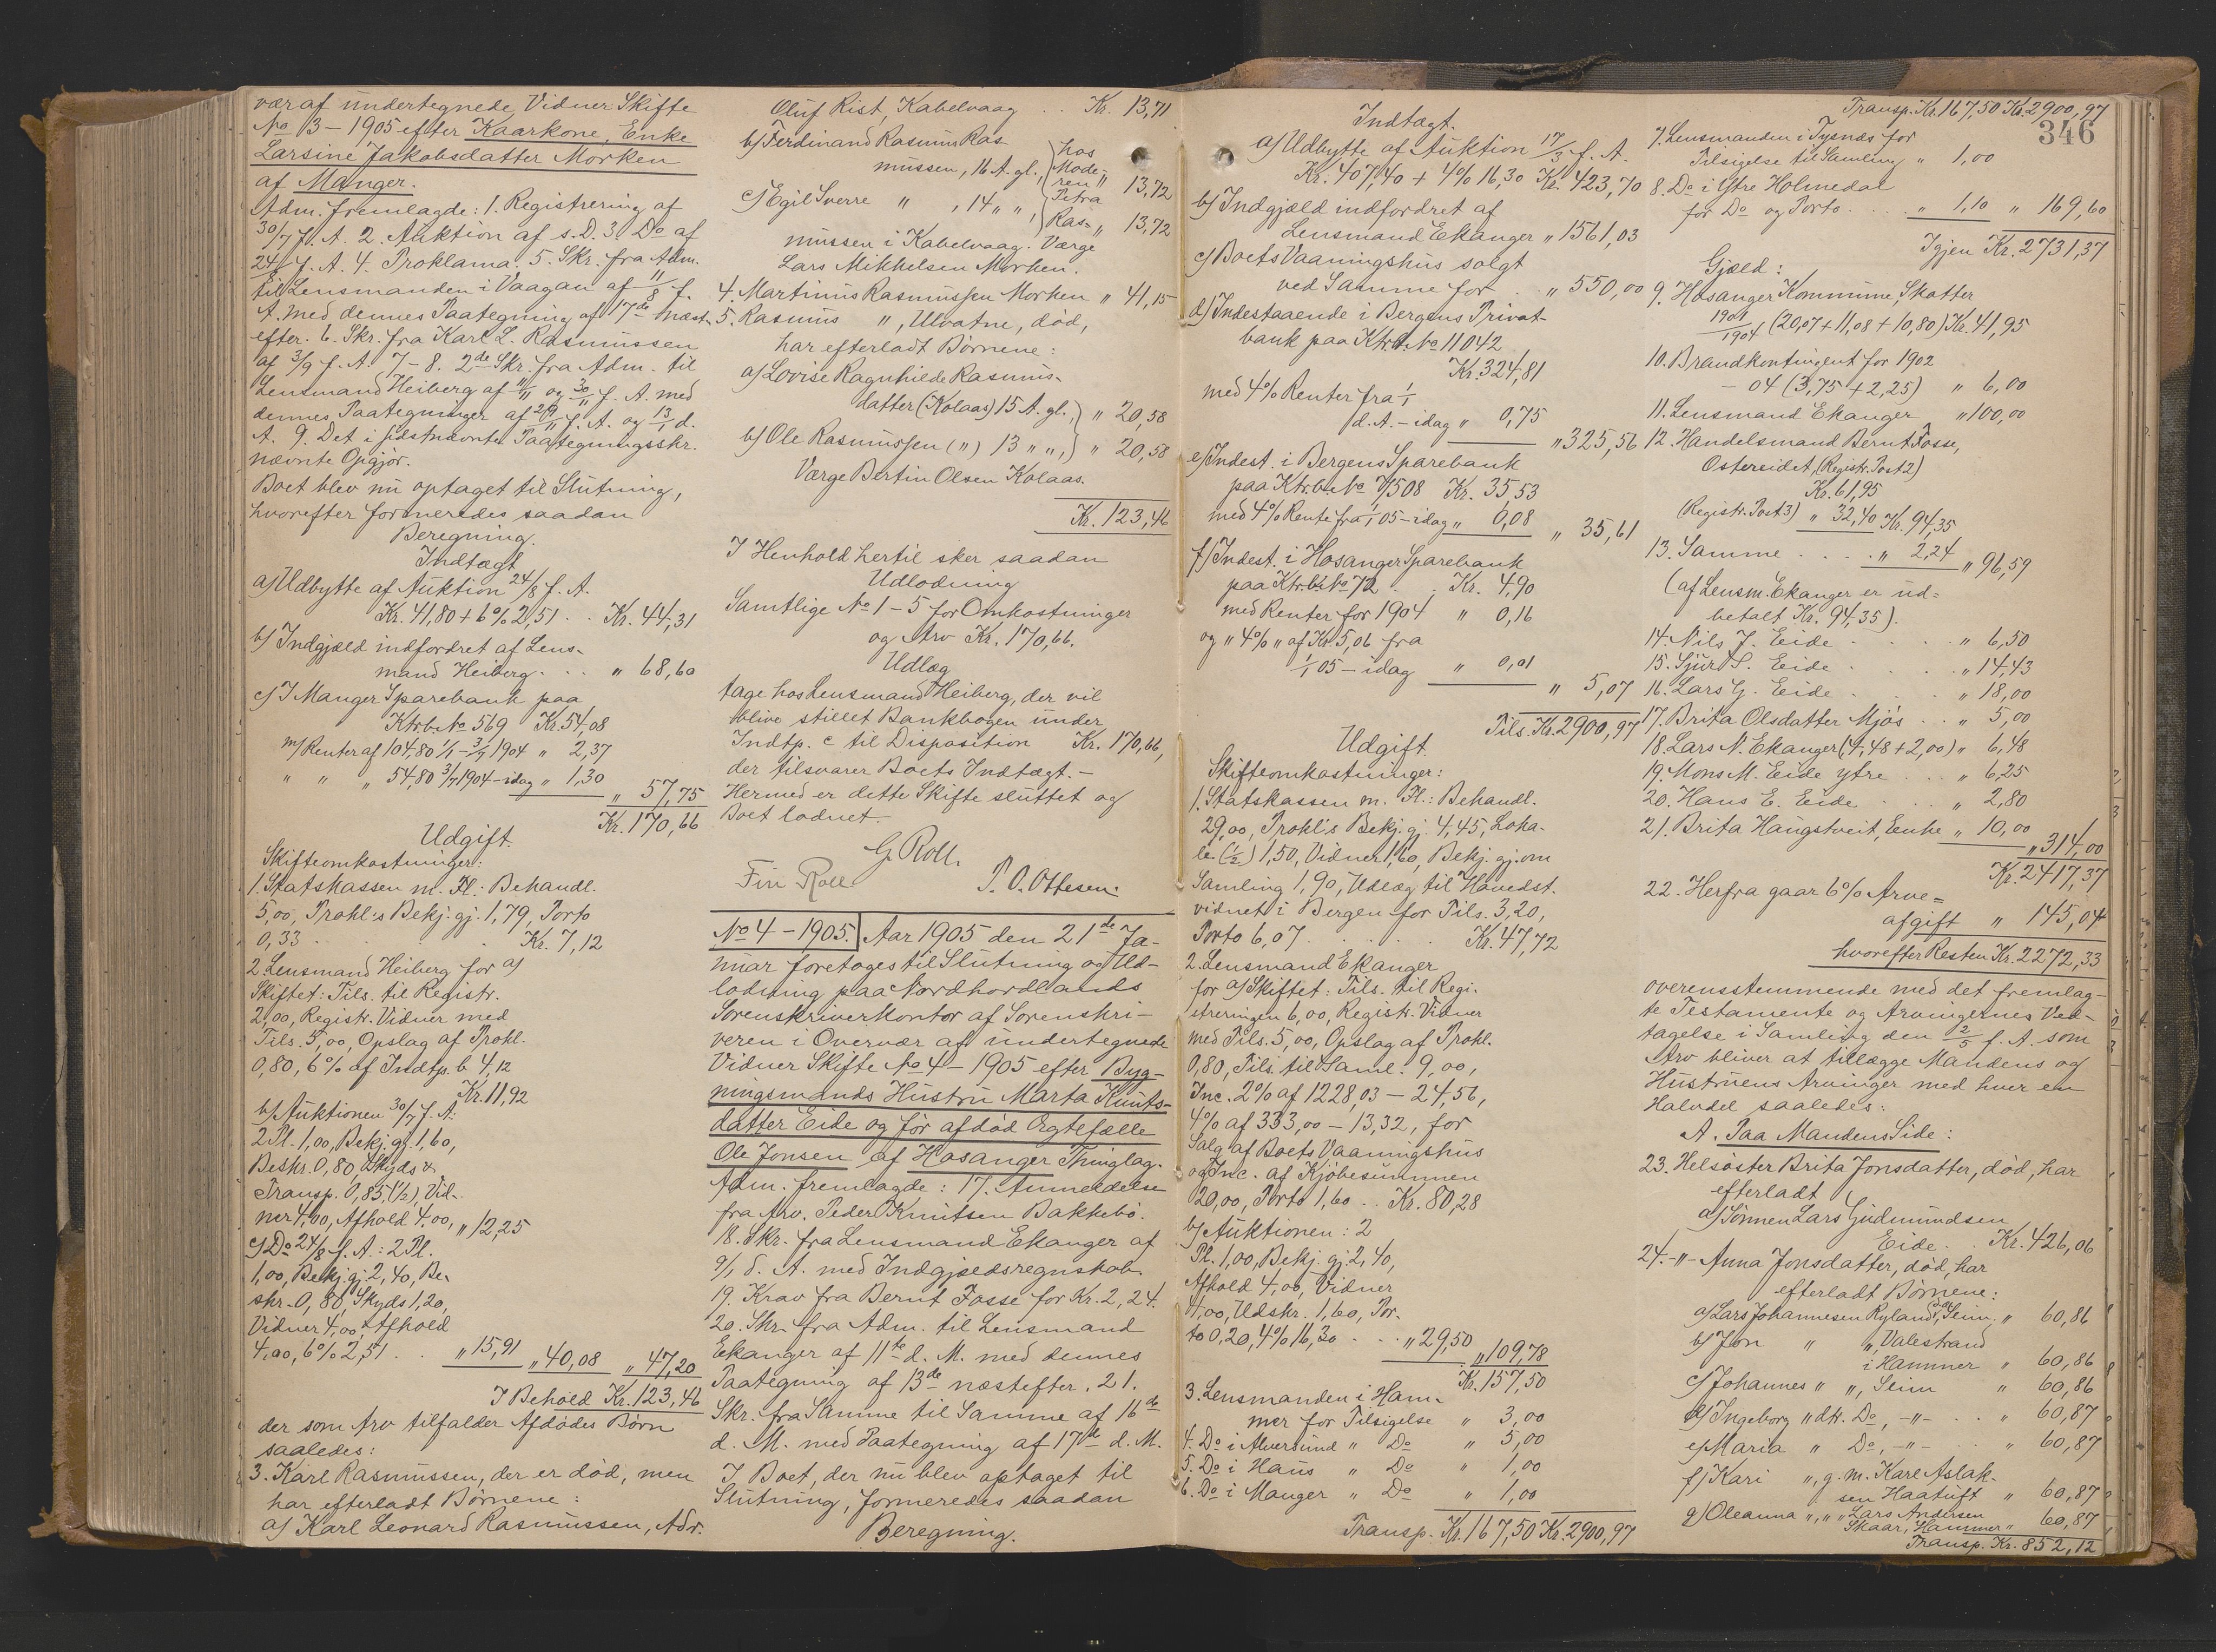 vær af undertegnede Vidner Skifte
No 3 – 1905 efter Kaarkone, Enke
Larsine Jakobsdatter Morken
af Manger.
Adm. fremlagde: 1. Registrering af
30/7 f. A. 2. Auktion af s. D. 3. Do af
24/8 f. A. 4. Proklama. 5. Skr. fra Adm.
til Lensmanden i Vaagan af 11/8 f.
A. med dennes Paategning af 17de næst-
efter. 6. Skr. fra Karl L. Rasmussen
af 3/9 f. A. 7 – 8. 2de Skr. fra Adm. til
Lensmand Heiberg af 11/11 og 30/11 f. A. med
dennes Paategninger af 29/11 f. A. og 13/1 d.
A. 9. Det i sidstnævnte Paategningsskr.
nævnte Opgjør.
Boet blev nu optaget til Slutning,
hvorefter formeredes saadan
Beregning.
Indtægt
a) Udbytte af Auktion 24/8 f. A.
Kr. 41,80 + 6% 2,51 . . Kr. 44,31
b) Indgjæld indfordret af Lens-
mand Heiberg . . . " 68,60
c) I Manger Sparebank paa
Ktrb. No 569 Kr. 54,08
m/ Renter af 104,80 1/1 – 3/7 1904 " 2,37
" " " 54,80 3/7 1904 – idag " 1,30
" 57,75
Kr. 170,66
Udgift.
Skifteomkostninger:
1. Statskassen m. Fl.: Behandl.
5,00, Prokl.s Bekj.gj. 1,79, Porto
0,33 . . . . Kr. 7,12
2. Lensmand Heiberg for a)
Skiftet: Tils. til Registr.
2,00, Registr. Vidner med
Tils. 5,00, Opslag af Prokl.
0,80, 6% af Indtp. b 4,12
Kr. 11,92
b) Auktionen 30/7 f. A.:
2 Pl. 1,00, Bekj.gj. 1,60,
Beskr. 0,80 Skyds &
Transp. 0,85 (1/2), Vid-
ner 4,00, Afhold 4,00, " 12,25
c) Do 24/8 f. A.: 2 Pl.
1,00, Bekj.gj. 2,40, Be-
skr. 0,80, Skyds 1,20,
Vidner 4,00, Afhold
4,00, 6% 2,51 . . " 15,91 " 40,08 " 47,20
I Behold Kr. 123,46
der som Arv tilfalder Afdødes Børn
saaledes:
3. Karl Rasmussen, der er død, men
har efterladt Børnene:
a) Karl Leonard Rasmussen, Adr.
Oluf Rist, Kabelvaag . . Kr. 13,71
b) Ferdinand Rasmus Ras-
mussen, 16 A. gl., hos Mode- ren " 13,72
c) Egil Sverre " , 14 " ", Petra Ras- " 13,72
mussen i Kabelvaag. Værge
Lars Mikkelsen Morken.
4. Martinus Rasmussen Morken " 41,15
5. Rasmus ", Ulvatne, død,
har efterladt Børnene:
a) Lovise Ragnhilde Rasmus-
datter (Kolaas) 15 A. gl., " 20,58
b) Ole Rasmussen (") 13 " ", " 20,58
Værge Bertin Olsen Kolaas.
Kr. 123,46
I Henhold hertil sker saadan
Udlodning
Samtlige No 1 – 5 for Omkostninger
og Arv Kr. 170,66.
Udlæg
tage hos Lensmand Heiberg, der vil
blive stillet Bankbogen under
Indtp. c til Disposition Kr. 170,66,
der tilsvarer Boets Indtægt. –
Hermed er dette Skifte sluttet og
Boet lodnet. –
G. Roll.
Finn Roll P. O. Ottesen.
No 4 – 1905. Aar 1905 den 21de Ja-
nuar foretoges til Slutning og Ud-
lodning paa Nordhordlands
Sorenskriverkontor af Sorenskri-
veren i Overvær af undertegnede
Vidner Skifte No 4 – 1905 efter Byg-
ningsmands Hustru Marta Knuts-
datter Eide og før afdød Ægtefælle
Ole Jonsen af Hosanger Thinglag.
Adm. fremlagde: 17. Anmeldelse
fra Arv. Peder Knutsen Bakkebø.
18. Skr. fra Lensmand Ekanger af
9/1 d. A. med Indgjældsregnskab.
19. Krav fra Bernt Fosse for Kr. 2,24.
20. Skr. fra Adm. til Lensmand
Ekanger af 11te d. M. med dennes
Paategning af 13de næstefter. 21.
Skr. fra Samme til Samme af 16de
d. M. med Paategning af 17de d. M.
I Boet, der nu blev optaget til
Slutning, formeredes saadan
Beregning.
Indtægt.
a) Udbytte af Auktion 17/3 f. A.
Kr. 407,40 + 4% 16,30 Kr. 423,70
b) Indgjæld indfordret af
Lensmand Ekanger " 1561,03
c) Boets Vaaningshus solgt
ved Samme for . . " 550,00
d) Indestaaende i Bergens Privat-
bank paa Ktrb. No 11042
Kr. 324,81
med 4% Renter fra 1/1
d. A. – idag " 0,75
" 325,56
e) Indest. i Bergens Sparebank
paa Ktrb. No 7/1508 Kr. 35 53
med 4% Rente fra 1/1 05 – idag " 0,08
" 35,61
f) Indest. i Hosanger Sparebank
paa Ktrb. No 72 . . Kr. 4,90
med Renter for 1904 " 0,16
og " 4% " af Kr. 5,06 fra
1/1 05 – idag " 0,01
" 5,07
Tils. Kr. 2900,97
Udgift.
Skifteomkostninger:
1. Statskassen m. Fl.: Behandl.
29,00, Prokl.s Bekj.gj. 4,45, Loka-
le (1/2) 1,50, Vidner 1,60, Bekj.gj. om
Samling 1,90, Udlæg til Hovedst.
vidnet i Bergen for Tils. 3,20,
Porto 6,07 . . . . Kr. 47,72
2. Lensmand Ekanger
for a) Skiftet: Tils. til Regi-
streringen 6,00, Registr. Vidner
med Tils. 5,00, Opslag af Prokl.
0,80, Tils. til Saml. 9,00,
Inc. 2% af 1228,03 – 24,56,
4% af 333,00 – 13,32, for
Salg af Boets Vaaningshus
og Inc. af Kjøbesummen
20,00, Porto 1,60 . . Kr. 80,28
b) Auktionen: 2
Pl. 1,00, Bekj.gj. 2,40,
Afhold 4,00, Vidner
4,00, Udskr. 1,60, Por-
to 0,20, 4% 16,30 . . . " 29,50 " 109,78
Kr. 157,50
3. Lensmanden i Ham-
mer for Tilsigelse " 3,00
4. Do i Alversund " Do " 5,00
5. Do i Haus " Do " 1,00
6. Do i Manger " Do " 1,00
Transp. Kr. 167,50 Kr. 2900,97
Transp. Kr. 167,50 Kr. 2900,97
346
7. Lensmanden i Tysnæs for
Tilsigelse til Samling " 1,00
8. Do i Ytre Holmedal
for Do og Porto . . . " 1,10 " 169,60
Igjen Kr. 2731,37
Gjæld:
9. Hosanger Kommune, Skatter
1901/1904 (20,07 + 11,08 + 10,80) Kr. 41,95
10. Brandkontingent for 1902
– 04 (3,75 + 2,25) " 6,00
11. Lensmand Ekanger " 100,00
12. Handelsmand Bernt Fosse,
Ostereidet, (Registr. Post 2)
Kr. 61,95
(Registr. Post 3) " 32,40 Kr. 94,35
13. Samme . . . . " 2,24 " 96,59
(af Lensm. Ekanger er ud-
betalt Kr. 94,35).
14. Nils J. Eide . . . " 6,50
15. Sjur S. Eide . . . " 14,43
16. Lars G. Eide . . . " 18,00
17. Brita Olsdatter Mjøs . . " 5,00
18. Lars N. Ekanger (4,48 + 2,00) " 6,48
19. Mons M. Eide ytre . . . " 6,25
20. Hans E. Eide . . . " 2,80
21. Brita Haugstveit, Enke " 10,00
" 314,00
Kr. 2417,37
22. Herfra gaar 6% Arve-
afgift " 145,04
hvorefter Resten Kr. 2272,33
overensstemmende med det fremlag-
te Testamente og Arvingernes Ved-
tagelse i Samling den 2/5 f. A. som
Arv bliver at tillægge Mandens og
Hustruens Arvinger med hver en
Halvdel saaledes:
A. Paa Mandens Side:
23. Helsøster Brita Jonsdatter, død, har
efterladt
a) Sønnen Lars Gudmundsen
Eide . . Kr. 426,06
24. –"– Anna Jonsdatter, død, har
efterladt Børnene:
a) Lars Johannesen Ryland, Seim, " 60,86
b) Jon " ", Valestrand
i Hammer " 60,86
c) Johannes " ", Seim " 60,86
d) Ingeborg " dtr. Do, –"– . . " 60,87
e) Maria " Do, –"– . . " 60,87
f) Kari " ", g. m. Karl Aslak-
sen Haatuft " 60,87
g) Oleanna ", " " Lars Andersen
Skaar, Hammer " 60,87
Transp. Kr. 852,12